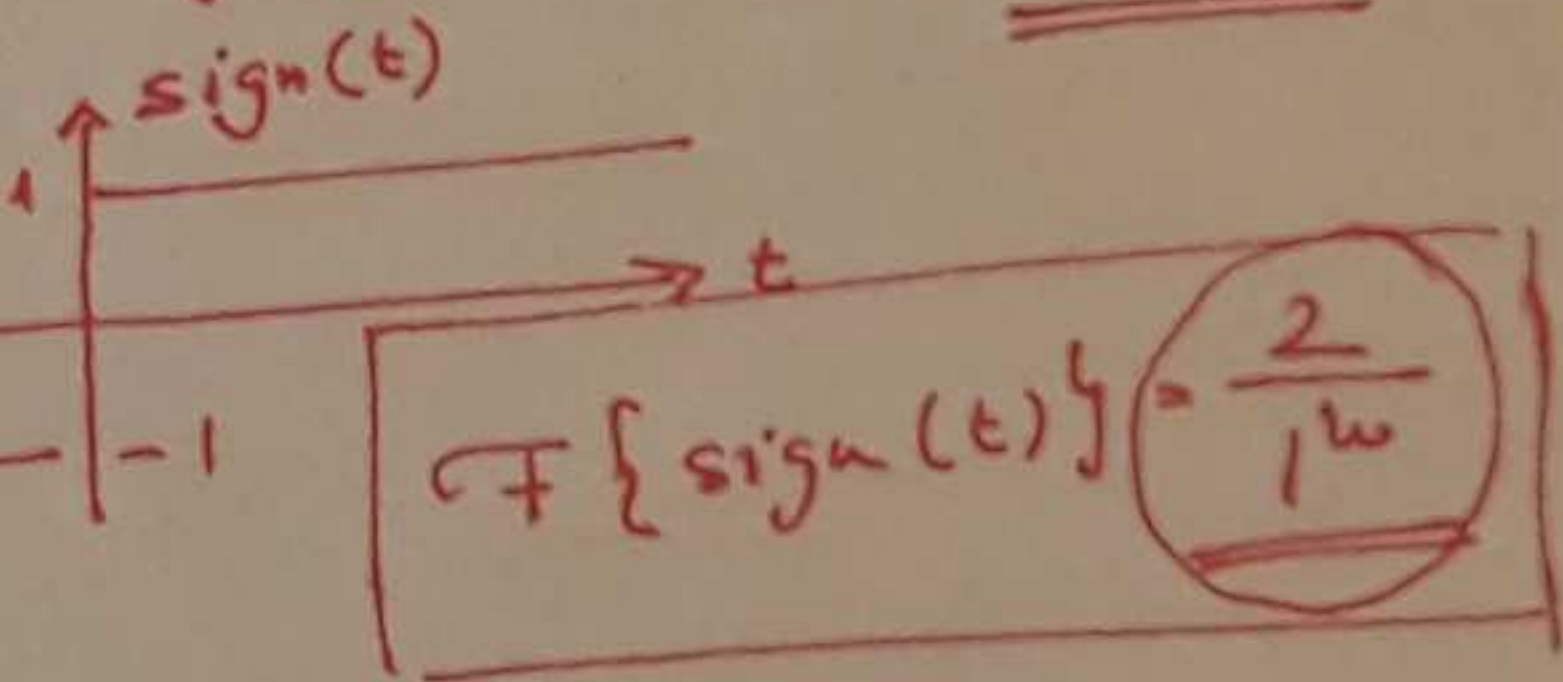 sign(t)
1
t
-1
F{sign(t)} = 2/1ω